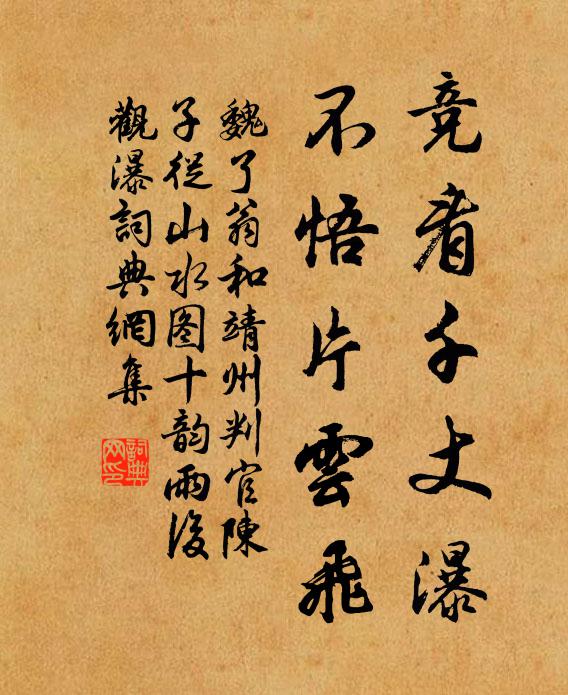 竞看千丈瀑
不悟片雲飛
魏了翁和靖州判官陳
子從山水图十韵雨後
觀瀑詞典網集
詞典
网印